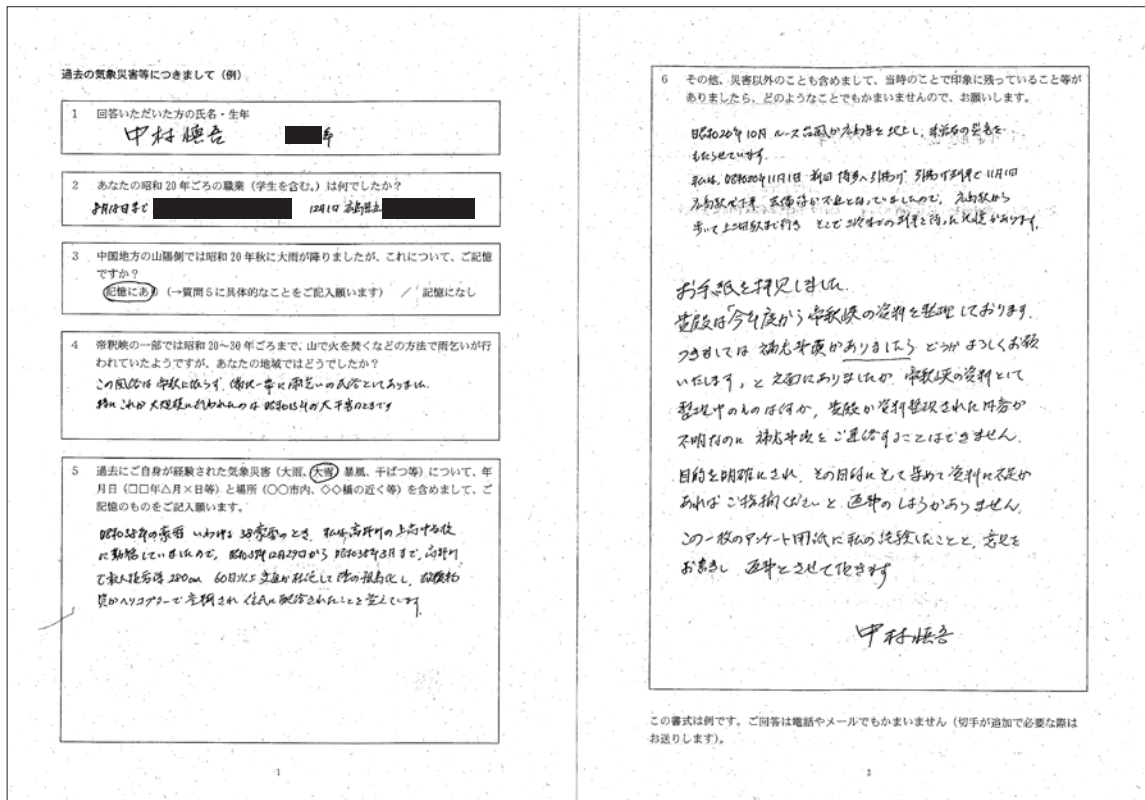 過去の気象災害等につきまして（例）
1 回答いただいた方の氏名・生年
中村慎吾 年
2 あなたの昭和 20 年ごろの職業（学生を含む。）は何でしたか？
8月18日まで 12月1日 広島県立
3 中国地方の山陽側では昭和 20 年秋に大雨が降りましたが、これについて、ご記憶
ですか？
記憶にあり（→質問５に具体的なことをご記入願います） ／ 記憶になし
4 帝釈峡の一部では昭和 20～30 年ごろまで、山で火を焚くなどの方法で雨乞いが行
われていたようですが、あなたの地域ではどうでしたか？
この風俗は帝釈に依らず、備北一帯に雨乞いの民俗としてありました
特にこれが大規模に行われたのは昭和13年の大干害のときです
5 過去にご自身が経験された気象災害（大雨、大雪、暴風、干ばつ等）について、年
月日（□□年△月×日等）と場所（○○市内、◇◇橋の近く等）を含めまして、ご
記憶のものをご記入願います。
昭和38年の豪雪 いわゆる38豪雪のとき、私は高野町の上高中学校
に勤務していましたので、昭和37年12月29日から昭和38年3月まで、高野町
で最大積雪深 280cm 60日以上交通が杜絶して陸の孤島化し、救援物
資がヘリコプターで空輸され住民に配給されたことを覚えています
1
6 その他、災害以外のことも含めまして、当時のことで印象に残っていること等が
ありましたら、どのようなことでもかまいませんので、お願いします。
昭和20年10月 ルース台風が広島県を北上し、の災害を
もたらせています。
私は、昭和20年11月1日 博多へ引揚げ 引揚げ列車で11月1日
広島駅で下車 芸備線が不通となっていましたので、広島駅から
歩いて上三田駅まで行き そこで三次までの列車を待った記憶があります。
お手紙を拝見しました。
貴殿は「今年度から帝釈峡の資料を整理しております。
つきましては 補充事項がありましたら どうかよろしくお願
いたします」と文面にありましたが 帝釈峡の資料として
整理中のものは何か、貴殿が資料整理された内容が
不明なのに 補充事項をご返信することはできません。
目的を明確にされ、その目的にそって集めて資料に不足が
あればご指摘くださいと 返事のしようがありません。
この一枚のアンケート用紙に私の経験したことと、意見を
お書きし 返事とさせて頂きます
中村慎吾
この書式は例です。ご回答は電話やメールでもかまいません（切手が追加で必要な際は
お送りします）。
2